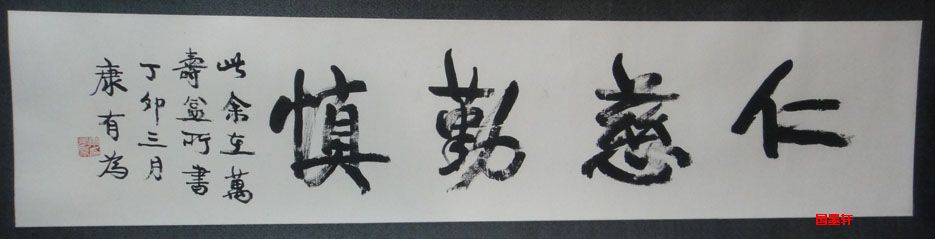 仁慈勤慎
此余在萬
壽盆所書
丁卯三月
康有為
国墨轩